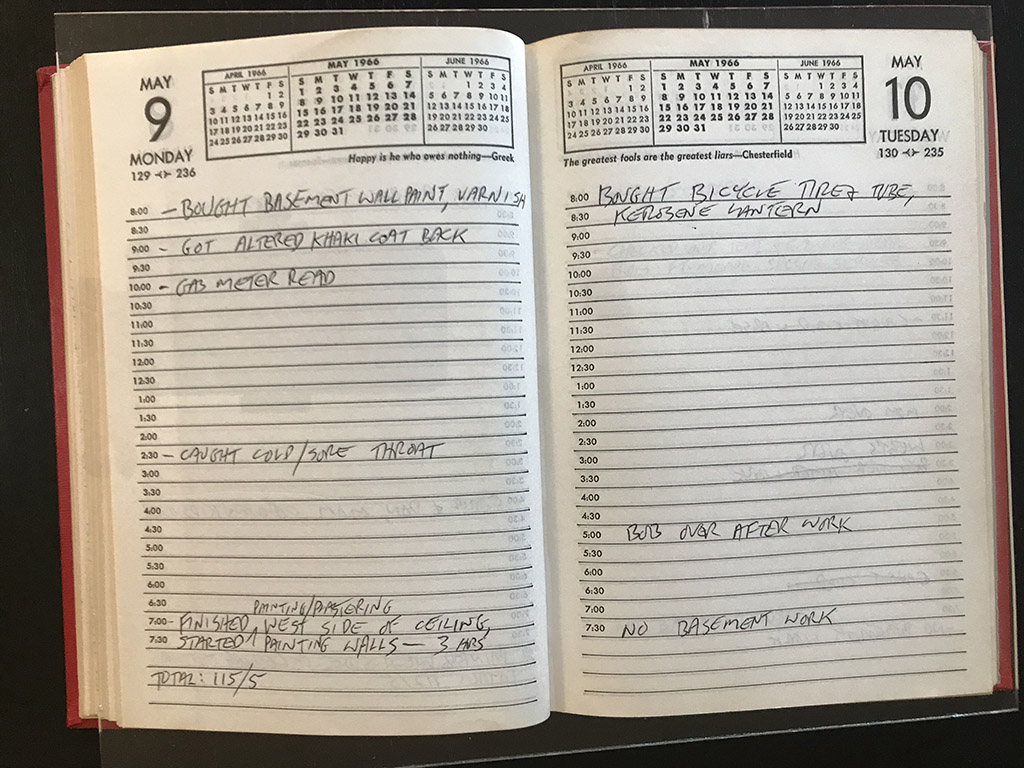 MAY
9
MONDAY
129 236
APRIL 1966
S M T W T F S
1 2
3 4 5 6 7 8 9
10 11 12 13 14 15 16
17 18 19 20 21 22 23
24 25 26 27 28 29 30
MAY 1966
S M T W T F S
1 2 3 4 5 6 7
8 9 10 11 12 13 14
15 16 17 18 19 20 21
22 23 24 25 26 27 28
29 30 31
JUNE 1966
S M T W T F S
1 2 3 4
5 6 7 8 9 10 11
12 13 14 15 16 17 18
19 20 21 22 23 24 25
26 27 28 29 30
Happy is he who owes nothing—Greek
8:00 – BOUGHT BASEMENT WALL PAINT, VARNISH
8:30
9:00 – GOT ALTERED KHAKI COAT BACK
9:30
10:00 – GAS METER READ
10:30
11:00
11:30
12:00
12:30
1:00
1:30
2:00
2:30 – CAUGHT COLD/SORE THROAT
3:00
3:30
4:00
4:30
5:00
5:30
6:00
6:30 PAINTING/PLASTERING
7:00 – FINISHED WEST SIDE OF CEILING,
7:30 STARTED PAINTING WALLS — 3 HRS
TOTAL: 115/5
APRIL 1966
S M T W T F S
1 2
3 4 5 6 7 8 9
10 11 12 13 14 15 16
17 18 19 20 21 22 23
24 25 26 27 28 29 30
MAY 1966
S M T W T F S
1 2 3 4 5 6 7
8 9 10 11 12 13 14
15 16 17 18 19 20 21
22 23 24 25 26 27 28
29 30 31
JUNE 1966
S M T W T F S
1 2 3 4
5 6 7 8 9 10 11
12 13 14 15 16 17 18
19 20 21 22 23 24 25
26 27 28 29 30
MAY
10
TUESDAY
130 235
The greatest fools are the greatest liars—Chesterfield
8:00 BOUGHT BICYCLE TIRE & TUBE,
8:30 KEROSENE LANTERN
9:00
9:30
10:00
10:30
11:00
11:30
12:00
12:30
1:00
1:30
2:00
2:30
3:00
3:30
4:00
4:30
5:00 BOB OVER AFTER WORK
5:30
6:00
6:30
7:00
7:30 NO BASEMENT WORK